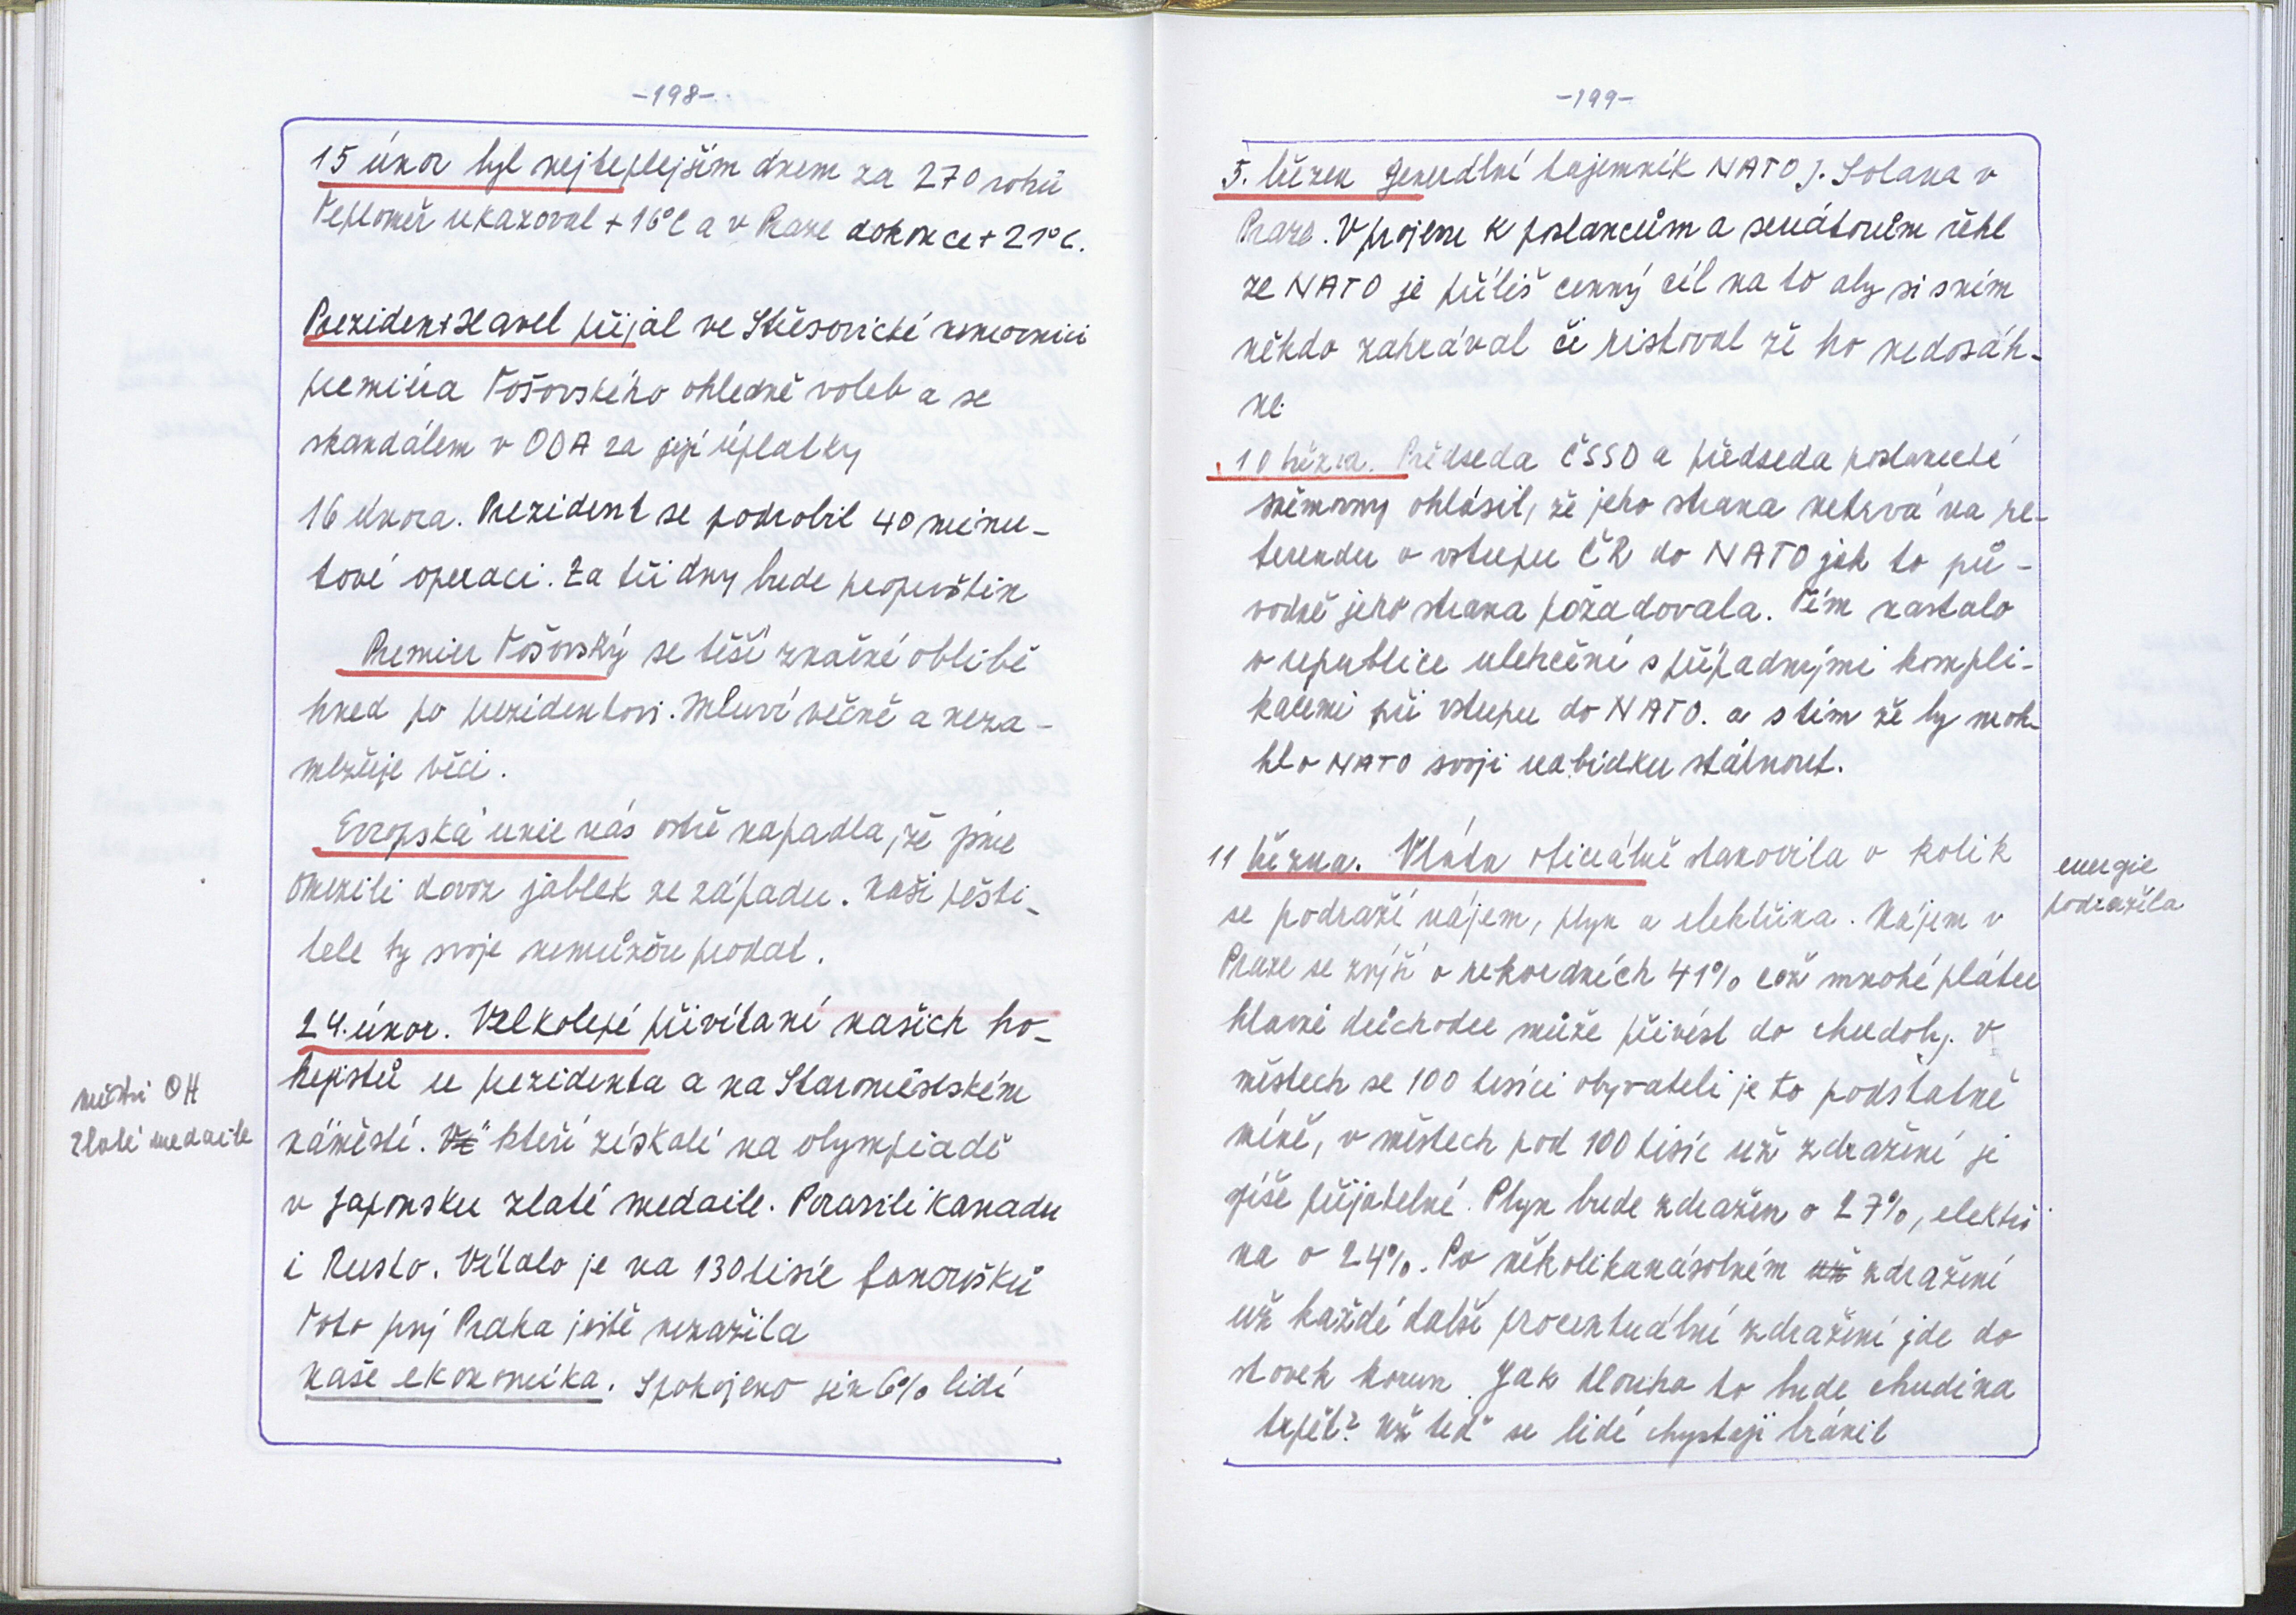 -198-
15 únor byl nejteplejším dnem za 270 roků
Teploměr ukazoval +16°C a v Praze dokonce +21°C.
Prezident Havel přijal ve Střešovické nemocnici
premiéra Tošovského ohledně voleb a se
skandálem v ODA za její úplatky
16 února. Prezident se podrobil 40 minu-
tové operaci. Za tři dny bude propuštěn
Premier Tošovský se těší značné oblibě
hned po prezidentovi. Mluví věčně a neza-
mlžuje věci.
Evropská unie nás ostře napadla, že jsme
omezili dovoz jablek ze západu. Naši pěsti-
tele ty svoje nemůžou prodat.
24. únor. Velkolepé přivítaní našich ho-
kejistů u prezidenta a na Staroměstském
náměstí. kteří získali na olympiadě
v Japonsku zlaté medaile. Porasili Kanadu
i Rusko. Vítalo je na 130 tisíc fanoušků
Toto prý Praha ještě nezažila
naše ekonomika. Spokojeno jen 6% lidí
mistři OH
zlaté medaile
-199-
5. březen Generální tajemník NATO J. Solana v
Praze. V projevu k poslancům a senátorům řekl
ze NATO je příliš cenný cíl na to aby si sním
někdo zahrával či riskoval že ho nedosáh-
ne.
10 března. Předseda ČSSD a předseda poslanecké
sněmovny ohlásil, že jeho strana netrvá na re-
ferendu o vstupu ČR do NATO jak to pů-
vodně jeho strana požadovala. Tím nastalo
v republice ulehčení s případnými kompli-
kacemi při vstupu do NATO. a s tím že by moh-
hlo NATO svoji nabídku stáhnout.
11 března. Vláda oficiálně stanovila o kolik
se podraží nájem, plyn a elektřina. Nájem v
Praze se zvýší o rekordních 41% což mnohé plátce
hlavně důchodce může přivést do chudoby. V
městech se 100 tisíci obyvateli je to podstatně
míně, v městech pod 100 tisíc už zdražení je
spíše přijatelné. Plyn bude zdražen o 27%, elektři
na o 24%. Po několikanásobném už zdražení
už každé další procentuální zdražení jde do
stovek korun. Jak dlouho to bude chudina
trpět? Už teď se lidé chystají bránit
energie
podražila